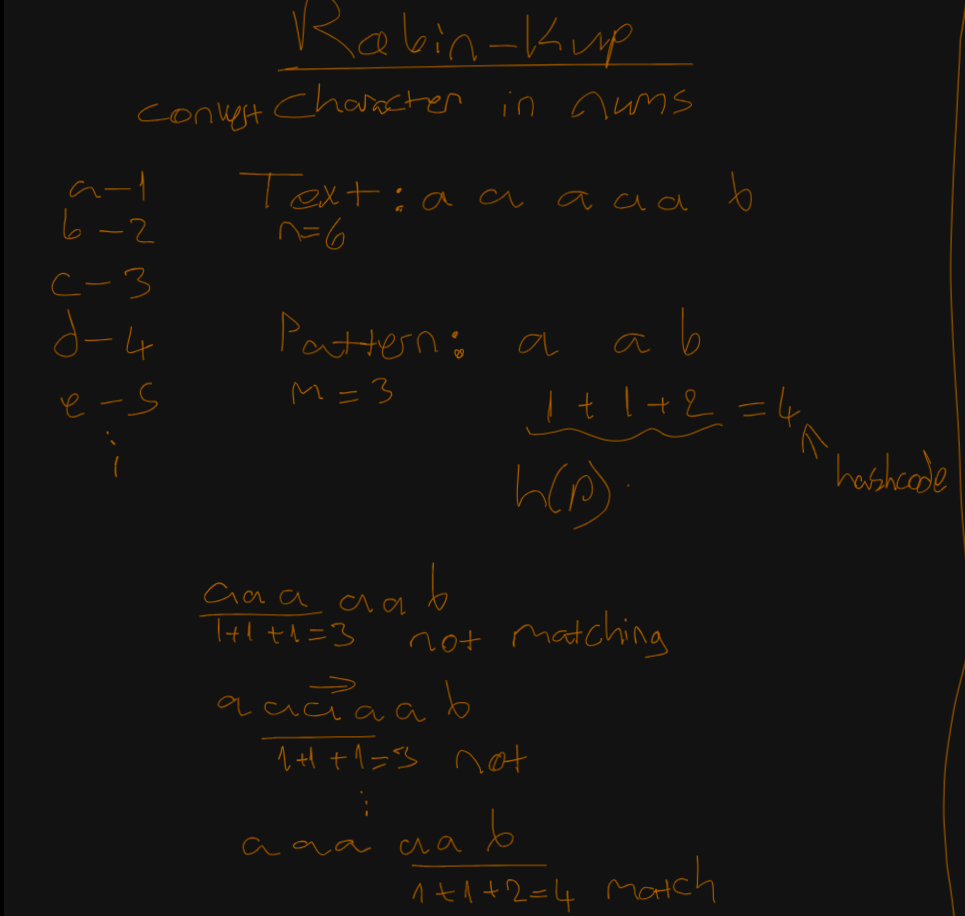 Rabin-Kurp
convert Character in nums
a-1
b-2
c-3
d-4
e-5
Text: a a a a a b
n=6
Pattern: a a b
m=3
1+1+2=4
hashcode
h(p)
aaa aab
1+1+1=3 not matching
aaaaab
1+1+1=3 not
aaa aab
1+1+2=4 match